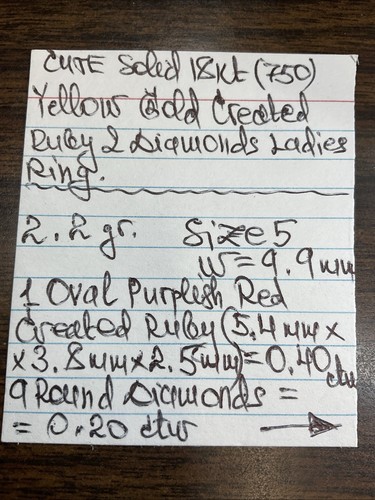 CUTE Solid 18Kt (750)
Yellow Gold Created
Ruby 2 Diamonds Ladies
Ring.
2.2 gr. Size 5
W = 9.9 mm
1 Oval Purplish Red
Created Ruby (5.4 mm x
x 3.8 mm x 2.5 mm) = 0.40 ctw
9 Round Diamonds =
= 0.20 ctw